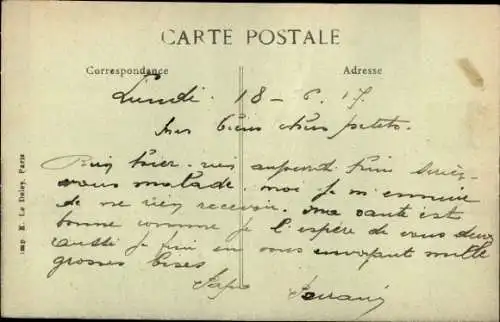 CARTE POSTALE
Correspondance
Adresse
Lundi. 18 - 6. 17.
Mes biens chers petits.
Rien hier. rien aujourd'hui seriez
vous malade. moi je m'ennuie
de ne rien recevoir. ma santé est
bonne comme je l'espère de vous deux
aussi je finis en vous envoyant mille
grosses bises
Papa
Imp. E. Le Deley, Paris